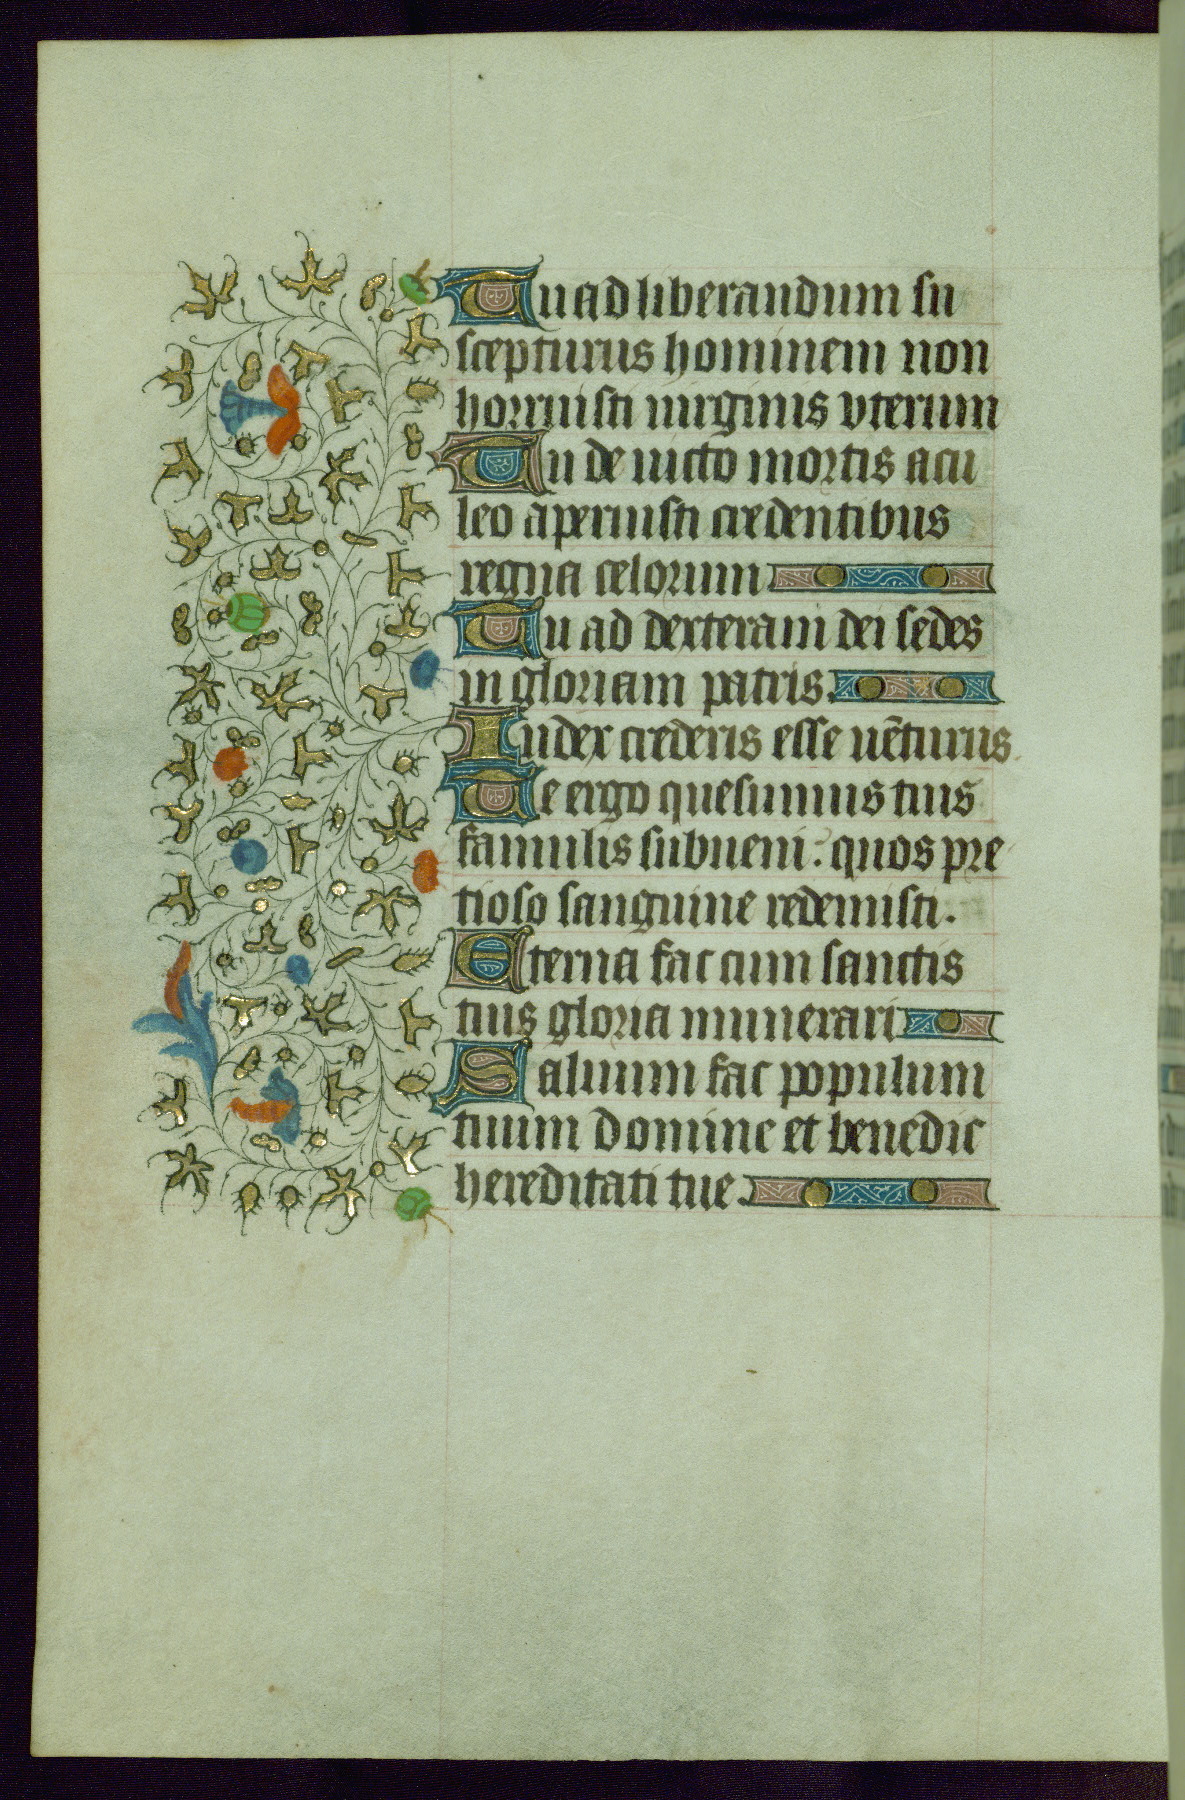 Tu ad liberandum su
scepturus hominem non
horruisti uirginis vterum
Tu de uicto mortis acu
leo aperuisti credentibus
regna celorum
Tu ad dexteram dei sedes
in gloriam patris.
Iudex crederis esse uēturus.
Te ergo quesumus tuis
famulis subueni: quos pre
tioso sanguine redemisti.
Eterna fac cum sanctis
tuis gloria munerari
Saluum fac populum
tuum domine et benedic
hereditati tue.